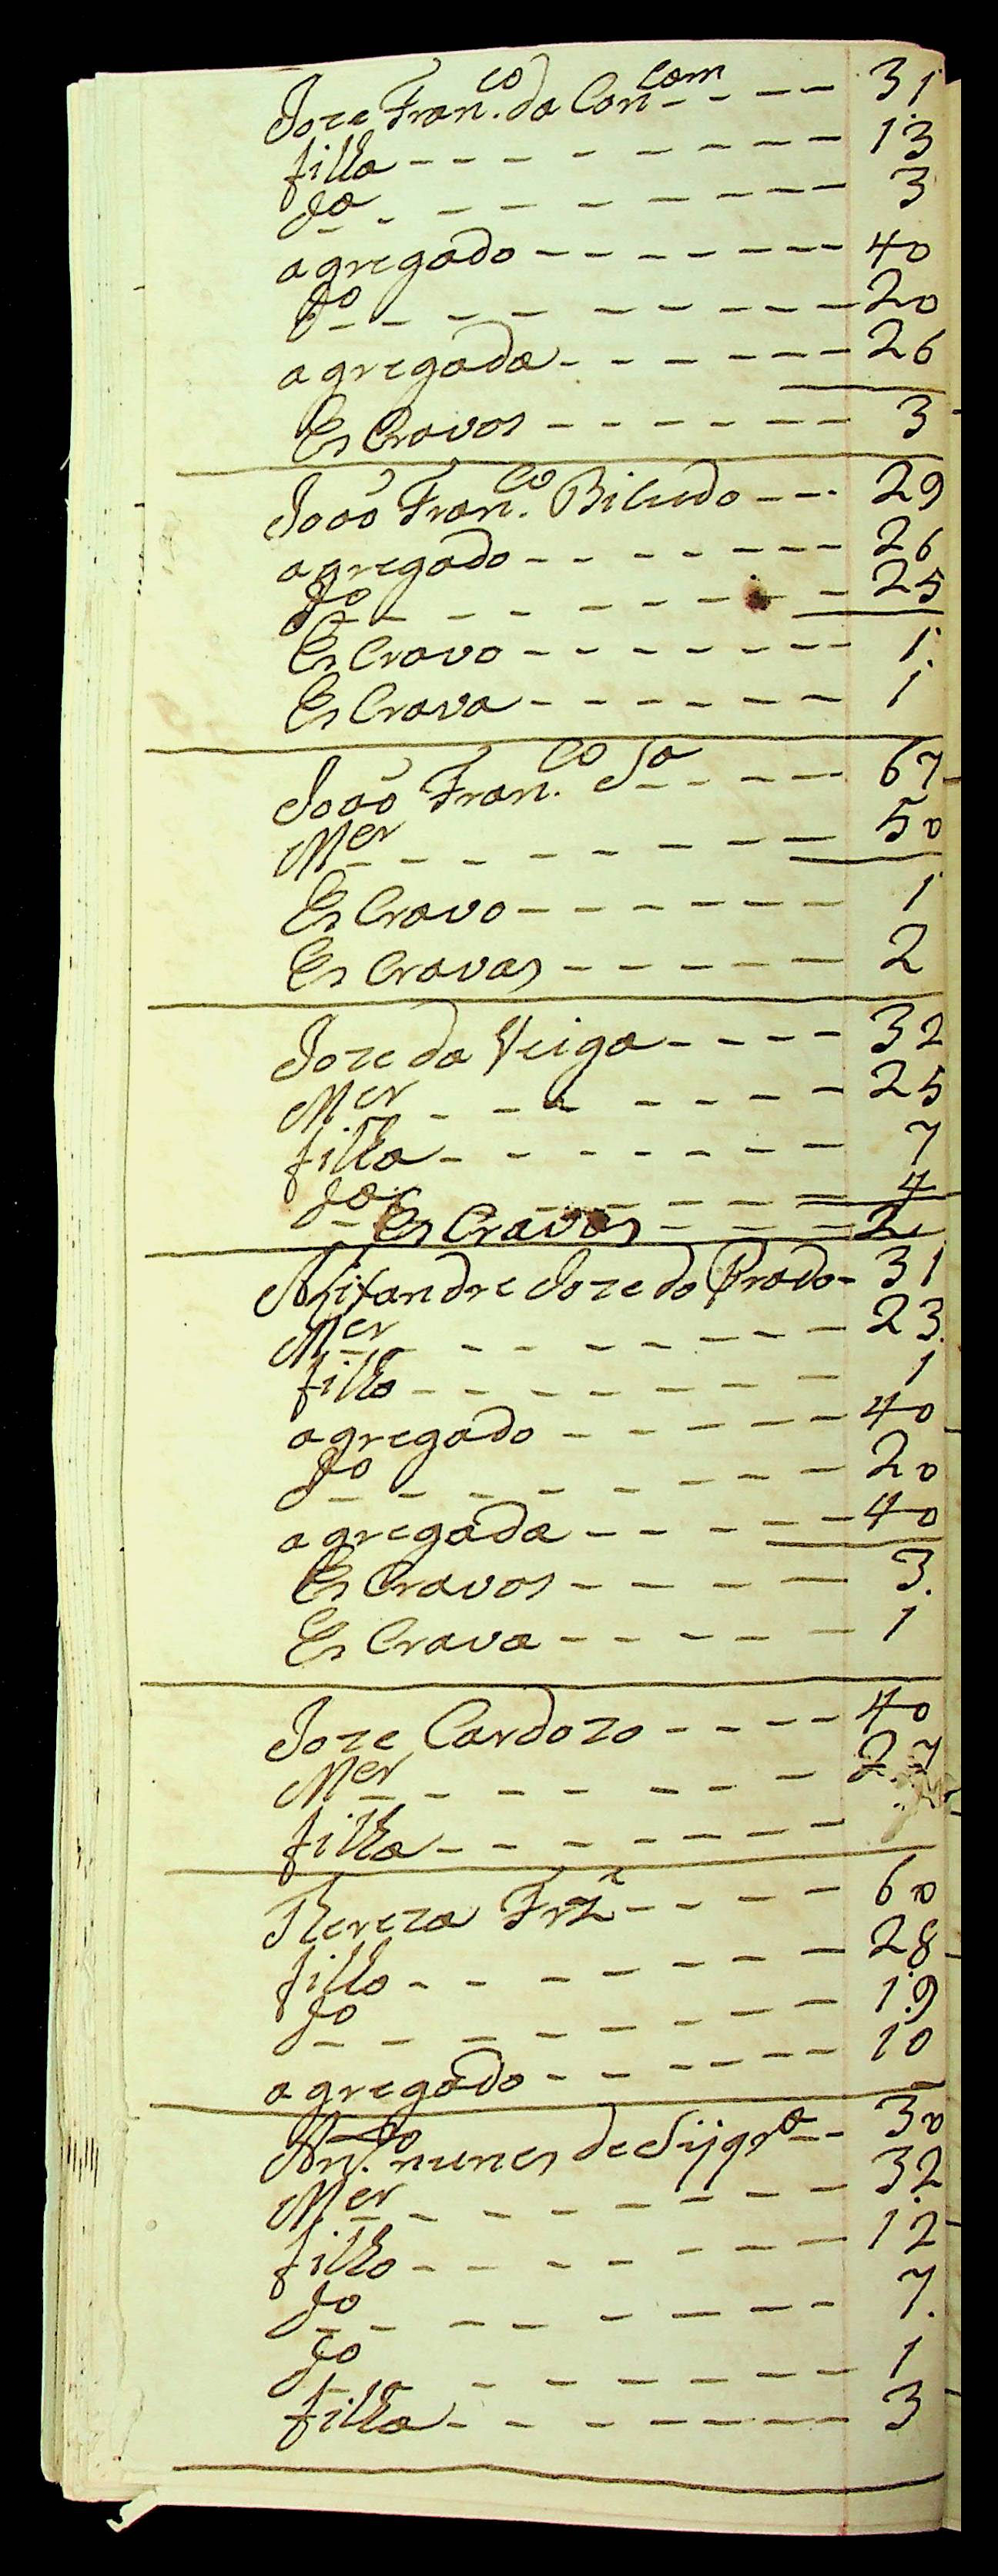 Joze Fran.co da Concam - - - - 31
filha - - - - - - - - - 13
da - - - - - - - - 3
agregado - - - - - - - 40
do - - - - - - - - - 20
agregada - - - - - - - 26
Escravos - - - - - - - 3
João Fran.co Bicudo - - - 29
agregado - - - - - - - - 26
do - - - - - - - - 25
Escravo - - - - - - - - 1
Escrava - - - - - - - 1
João Fran.co Sa - - - - 67
Mer - - - - - - - - - 50
Escravo - - - - - - - 1
Escravas - - - - - - 2
Joze da Veiga - - - - 32
Mer - - - - - - - - 25
filha - - - - - - - - 7
da - - - - - 4
Escravos - - - 2
Alixandre Joze do Prado - 31
Mer - - - - - - - - 23
filho - - - - - - - - 1
agregado - - - - - - 40
do - - - - - - - - 20
agregada - - - - - - 40
Escravos - - - - - 3
Escrava - - - - - - 1
Joze Cardozo - - - - 40
Mer - - - - - - - - 27
filha - - - - - - - -
Thereza Frz - - - - 60
filho - - - - - - - - 28
do - - - - - - - - 19
agregado - - - - - - 10
An.to nunes de Siqra - - 30
Mer - - - - - - - - 32
filho - - - - - - - - 12
do - - - - - - - - 7
do - - - - - - - 1
filha - - - - - - - - 3